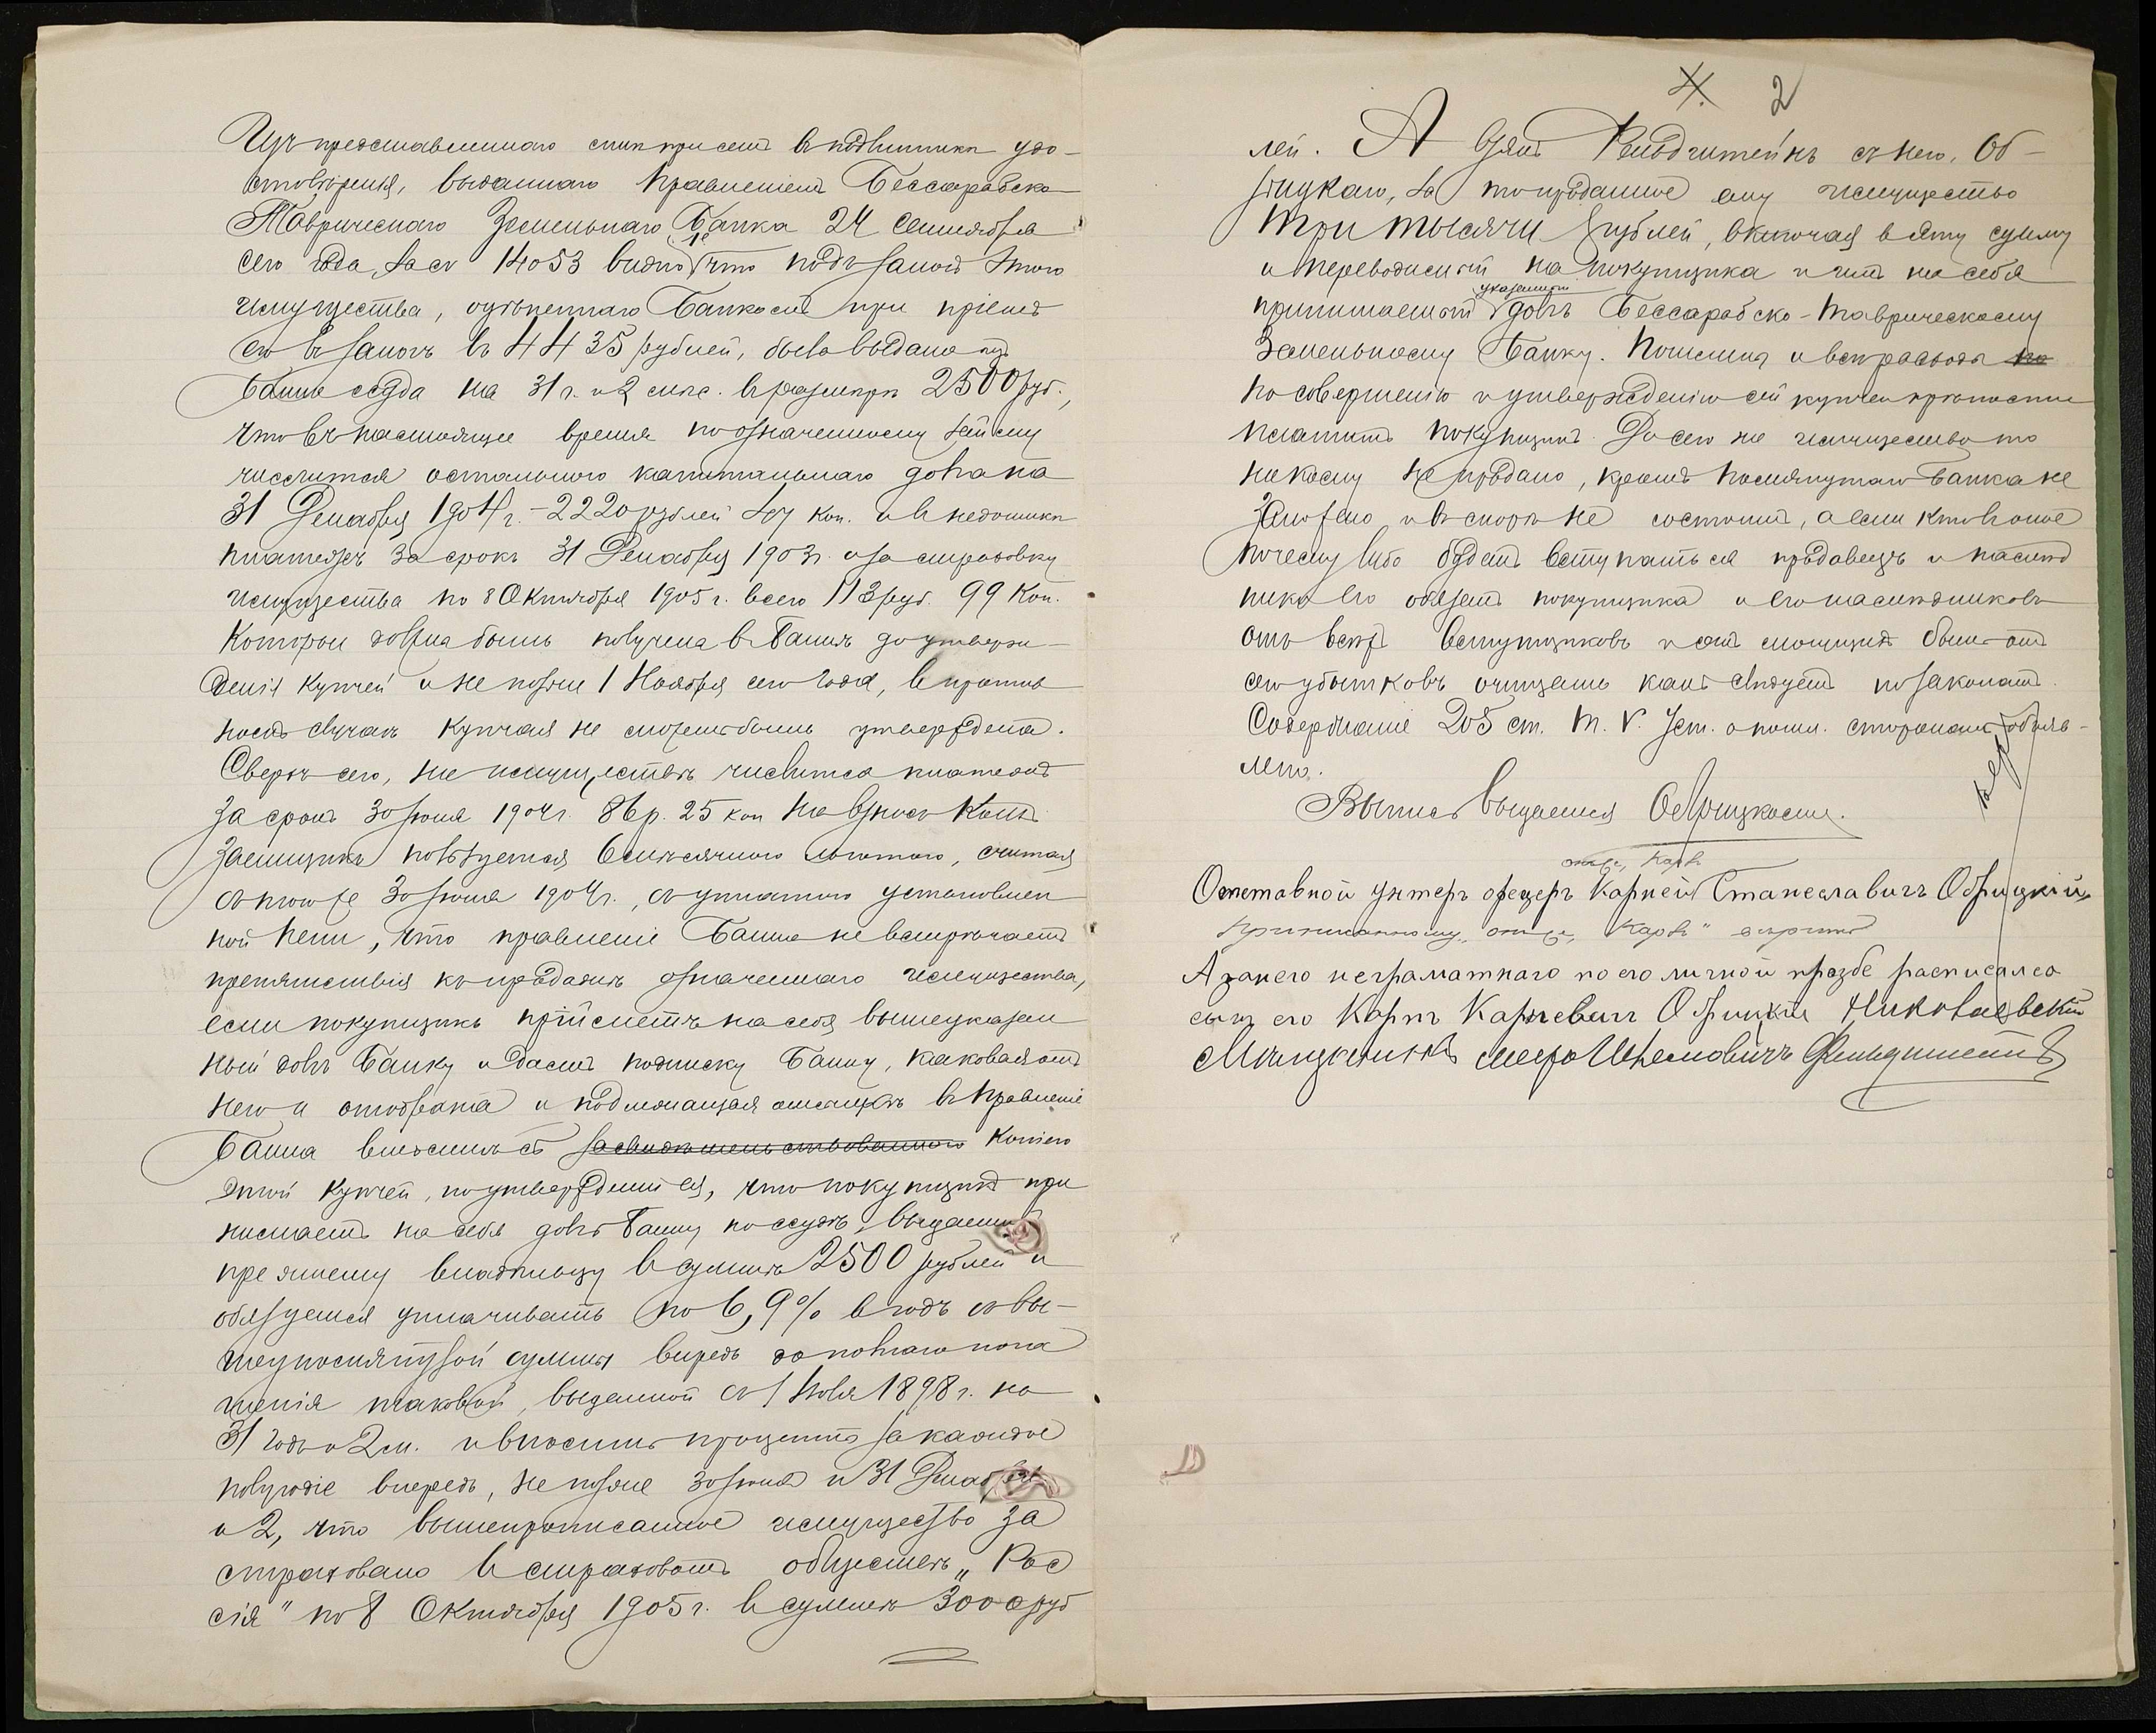 Изъ представленнаго мнѣ при семъ въ подлинникѣ удо-
стовѣренія, выданнаго Правленіемъ Бессарабско
Таврическаго Земельнаго Банка 24 Сентября
сего года, за № 14053 видно 1е/ что подъ залогъ этого
имущества, оцѣненнаго Банкомъ при пріемѣ
его въ залогъ въ 4435 рублей, была выдана изъ
Банка ссуда на 31 г. и 2 мѣс. въ размѣрѣ 2500 руб.,
что въ настоящее время по означенному займу
числится остальнаго капитальнаго долга на
31 Декабря 1904 г. – 2220 рублей коп. и въ недоимкѣ
платежъ за срокъ 31 Декабря 1903 г. и за страховку
имущества по 8 Октября 1905 г. всего 113 руб. 99 коп.
которые должна быть получена въ Банкъ до утверж-
денія купчей и не позже 1 Ноября сего года, въ против
номъ случаѣ купчая не можетъ быть утверждена.
Сверхъ сего, на имуществѣ числится платежъ
за срокъ 30 Іюня 1904 г. 86 р. 25 коп на взносъ коихъ
заемщикъ пользуется 6 мѣсячною льготою, считая
съ 30 Іюня 1904 г., съ уплатою установлен
ной пени, что правленіе Банка не встрѣчаетъ
препятствія къ продажѣ означеннаго имущества,
если покупщикъ приметъ на себя вышеуказан
ный долгъ Банку и дастъ подписку Банку, каковая отъ
него и отобрана и подлежащая отсылкѣ въ Правленіе
Банка вмѣстѣ съ засвидѣтельствованною копіею
этой купчей, по утвержденіи ея, что покупщикъ при
нимаетъ на себя долгъ Банку по ссудѣ, выданной
прежнему владѣльцу въ суммѣ 2500 рублей и
обязуется уплачивать по 6,9% въ годъ съ вы-
шеупомянутой суммы впредь до полнаго пога
шенія таковой, выданной съ 1 Ноября 1898 г. на
31 годъ и 2 м. и вносить проценты за каждое
полугодіе впередъ, не позже 30 Іюня и 31 Декабря
и 2, что вышепрописанное имущество за
страховано въ страховомъ обществѣ „Рос
сія" по 8 Октября 1905 г. въ суммѣ 3000 руб
2
лей. А взялъ съ него, Об-
рицкаго, за то проданное ему имущество
три тысячи рублей, включая въ эту сумму
и переводимый на покупщика и имъ на себя
указанный
принимаемый долгъ Бессарабско-Таврическому
Земельному Банку. Пошлины и всѣ расходы по
по совершенію и утвержденію сей купчей крѣпости
платитъ покупщикъ. До сего же имущество то
никому не продано, кромѣ помянутаго Банка не
заложено и въ спорѣ не состоитъ, а если кто въ оное
почему либо будетъ вступаться продавецъ и наслѣд
ники его обязанъ покупщика и его наслѣдниковъ
отъ всѣхъ вступщиковъ и отъ могущихъ быть отъ
сего убытковъ очищать какъ слѣдуетъ по законамъ.
Содержаніе 205 ст. т. V. Уст. о пошл. сторонамъ объяв-
лено.
Выпись выдается Обрицкому.
отст. Карп
Отставной унтеръ офецеръ Карпей Станеславичъ Обрицкій,
А за него неграматнаго по его личной прозбе расписался
сынъ его Карпъ Карпевич Обрицкій Николаевскій
Мѣщанинъ